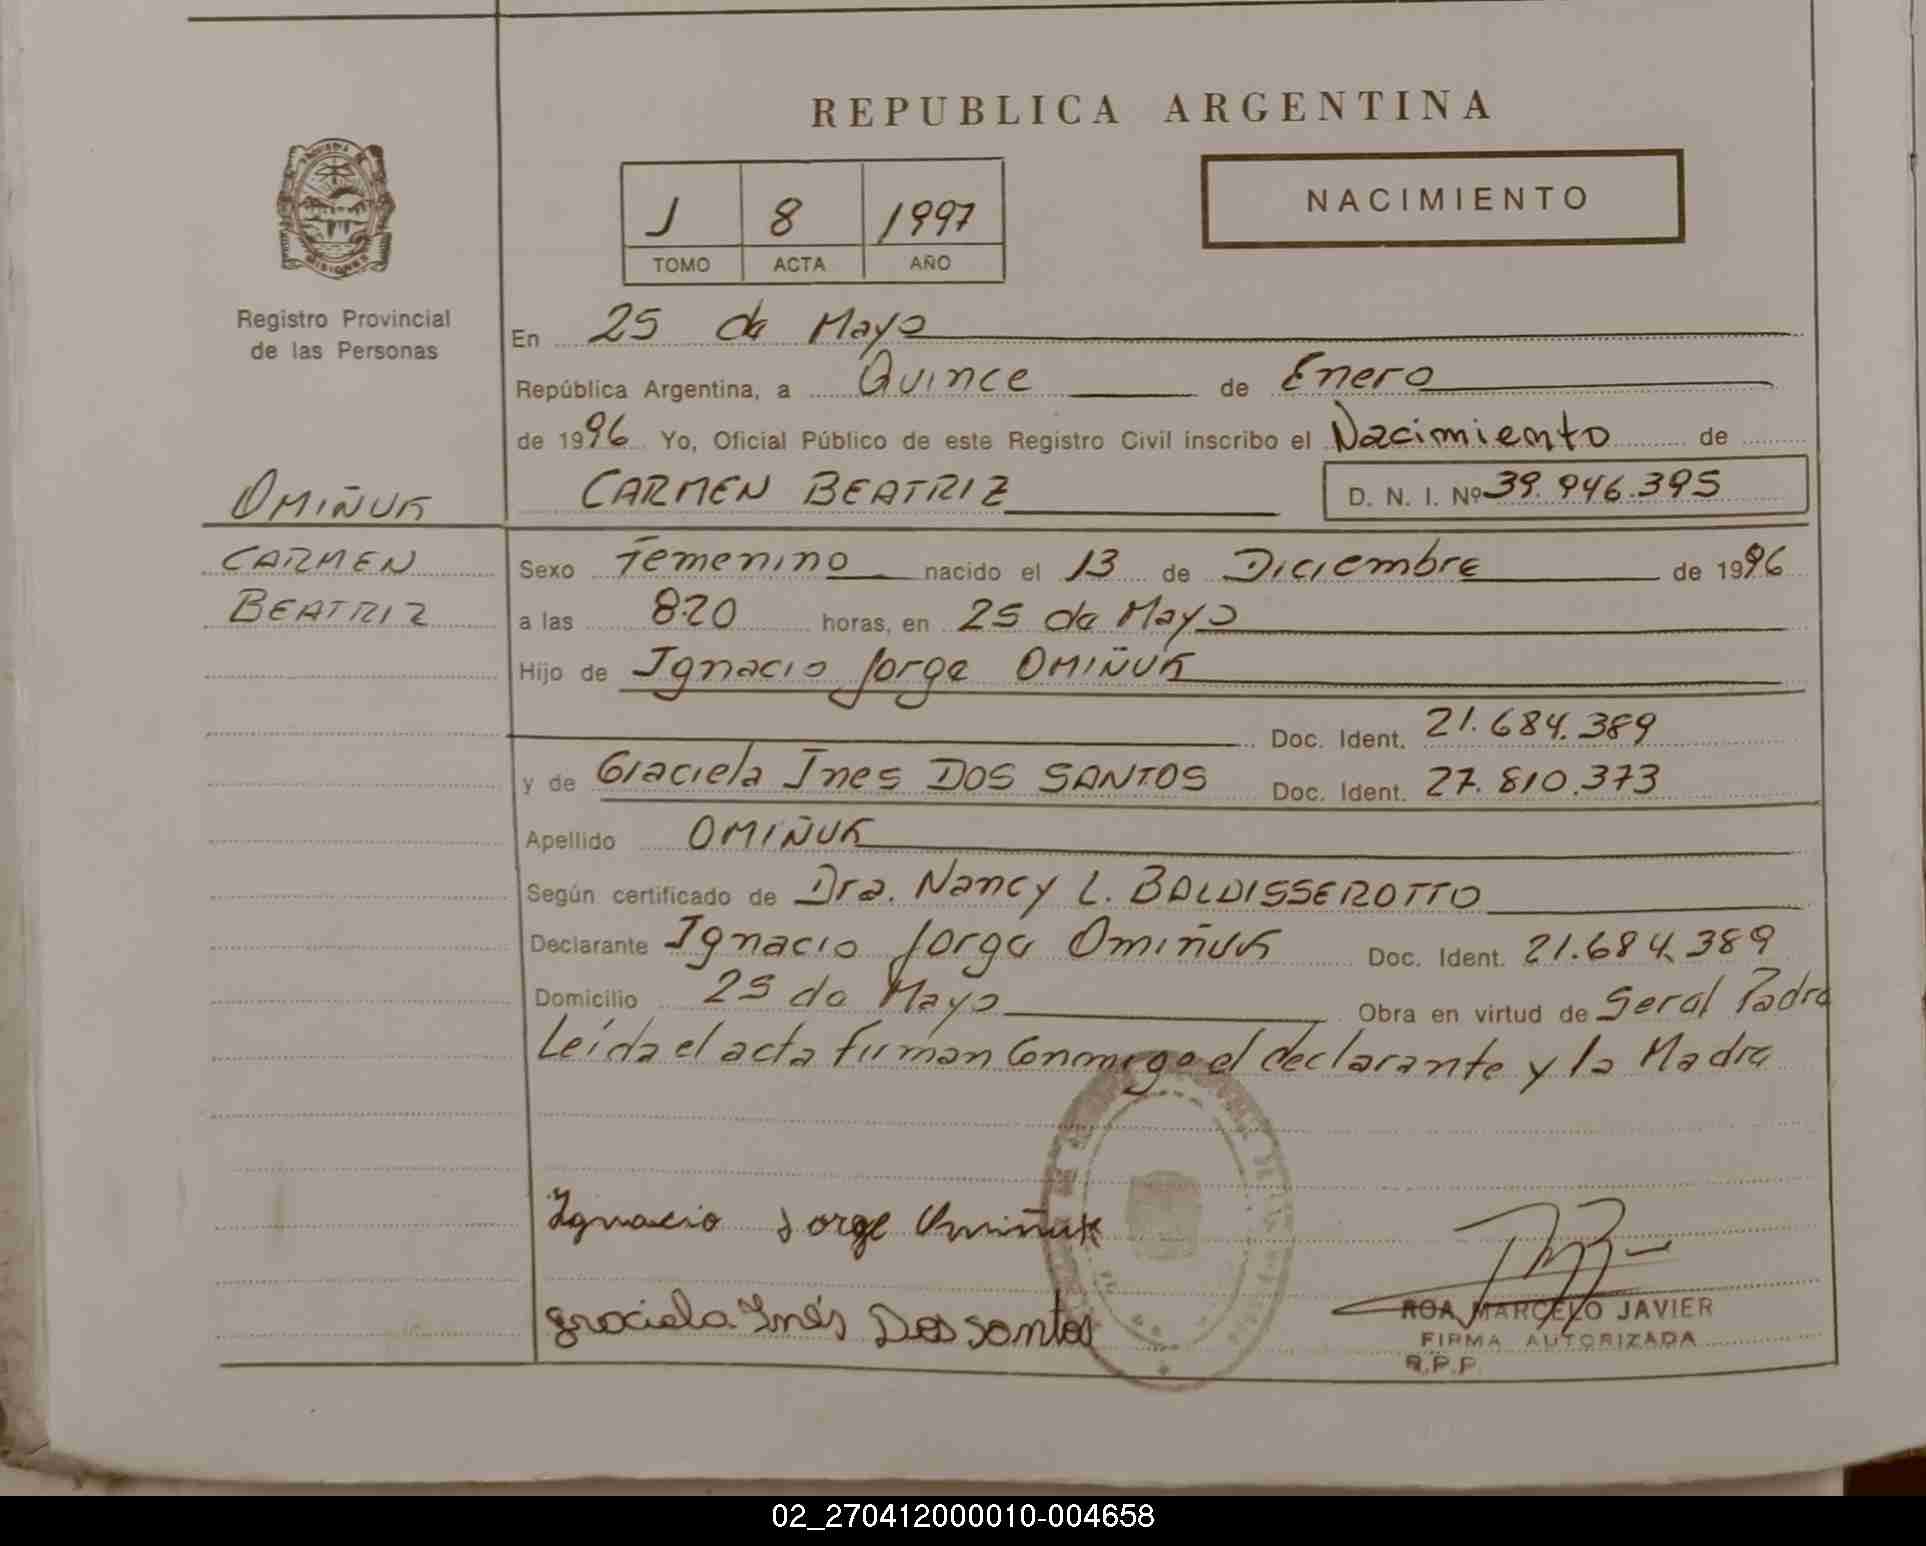 REPUBLICA ARGENTINA
NACIMIENTO
J 8 1997
TOMO ACTA AÑO
MISIONES
Registro Provincial
de las Personas
En 25 de Mayo
República Argentina, a Quince de Enero
de 1996 Yo, Oficial Público de este Registro Civil inscribo el Nacimiento de
OMIÑUK
CARMEN BEATRIZ D. N. I. Nº 39.946.395
CARMEN
BEATRIZ
Sexo Femenino nacido el 13 de Diciembre de 1996
a las 8.20 horas, en 25 de Mayo
Hijo de Ignacio Jorge OMIÑUK
Doc. Ident. 21.684.389
y de Graciela Ines DOS SANTOS Doc. Ident. 27.810.373
Apellido OMIÑUK
Según certificado de Dra. Nancy L. BALDISSEROTTO
Declarante Ignacio Jorge Omiñuk Doc. Ident. 21.684.389
Domicilio 25 de Mayo Obra en virtud de Ser el Padre
Leída el acta firman Conmigo el declarante y la Madre
Ignacio Jorge Omiñuk
Graciela Inés Dos santos
ROA MARCELO JAVIER
FIRMA AUTORIZADA
R.P.P.
02_270412000010-004658